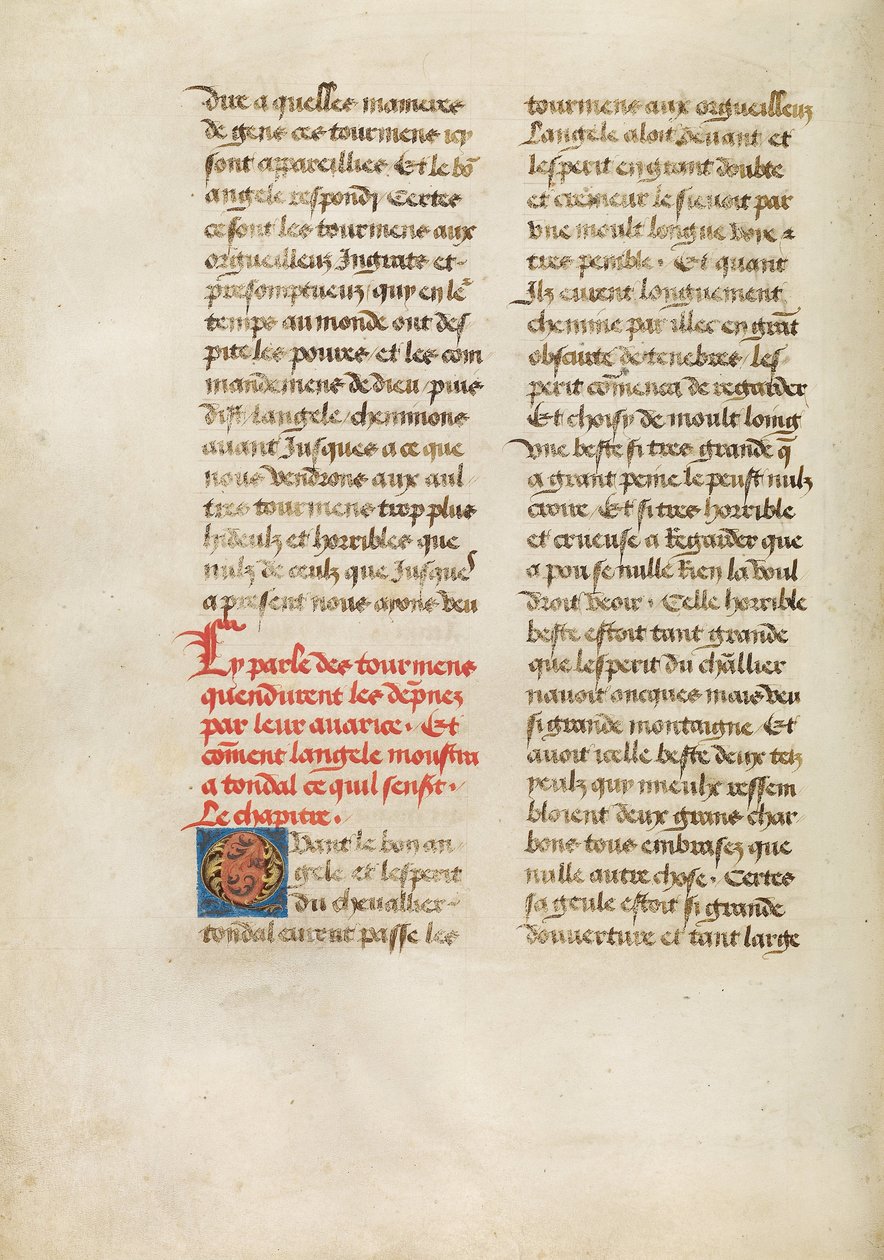 dire a quelles manieres
de gens ces tourmens icy
sont appareilliés. Et le bõ
angele respondy Certes
ce sont les tourmens aux
orgueilleuz Ingrats et-
presomptueuz/ quy en le
temps au monde ont des/
pite les poures/ et les com
mandemens de dieu/ puis
dist/ langele/ cheminons
auant Jusques a ce que
nous vendrons aux aul/
tres tourmens trop plus
hideulz et horribles que
nulz de ceulz que Jusques
a present nous ayons veu
Cy parle des tourmens
quendurent les dep̃nez
par leur auarice. Et
com̃ent langele moustra
a tondal ce quil sensst.
Le chapitre.
Quant le bon an-
gele et lesperit
du cheuallier-
tondal eurent passe les
tourmens aux orgueilleuz
Langele aloit deuant et
lesperit en grant doubte
et cremeur le sieuoit par
vne moult longue voye &
tres penible. Et quant
Ilz eurent longuement
chemine par illec en grãt
obscurte de tenebres/ les/
perit com̃enca de regarder
Et choisy de moult loing
vne beste si tres grande q̃
a grant peine le peust nulz
croire/ Et si tres horrible
et crueuse a Regarder que
a pou se nulle Rien la voul
droit veoir. Celle horrible
beste estoit tant grande
que lesperit du chãllier
nauoit oncques mais veu
si grande montaigne/ Et
auoit icelle beste deux telz
yeulz quy mieulx ressem/
bloient deux grans char-
bons tous embrasez que
nulle autre chose. Certes
sa geule estoit si grande
douuerture et tant large